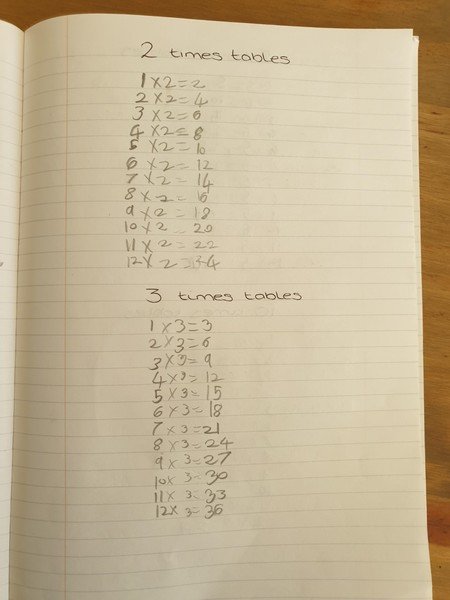 2 times tables
1 X 2 = 2
2 X 2 = 4
3 X 2 = 6
4 X 2 = 8
5 X 2 = 10
6 X 2 = 12
7 X 2 = 14
8 X 2 = 16
9 X 2 = 18
10 X 2 = 20
11 X 2 = 22
12 X 2 = 24
3 times tables
1 X 3 = 3
2 X 3 = 6
3 X 3 = 9
4 X 3 = 12
5 X 3 = 15
6 X 3 = 18
7 X 3 = 21
8 X 3 = 24
9 X 3 = 27
10 X 3 = 30
11 X 3 = 33
12 X 3 = 36